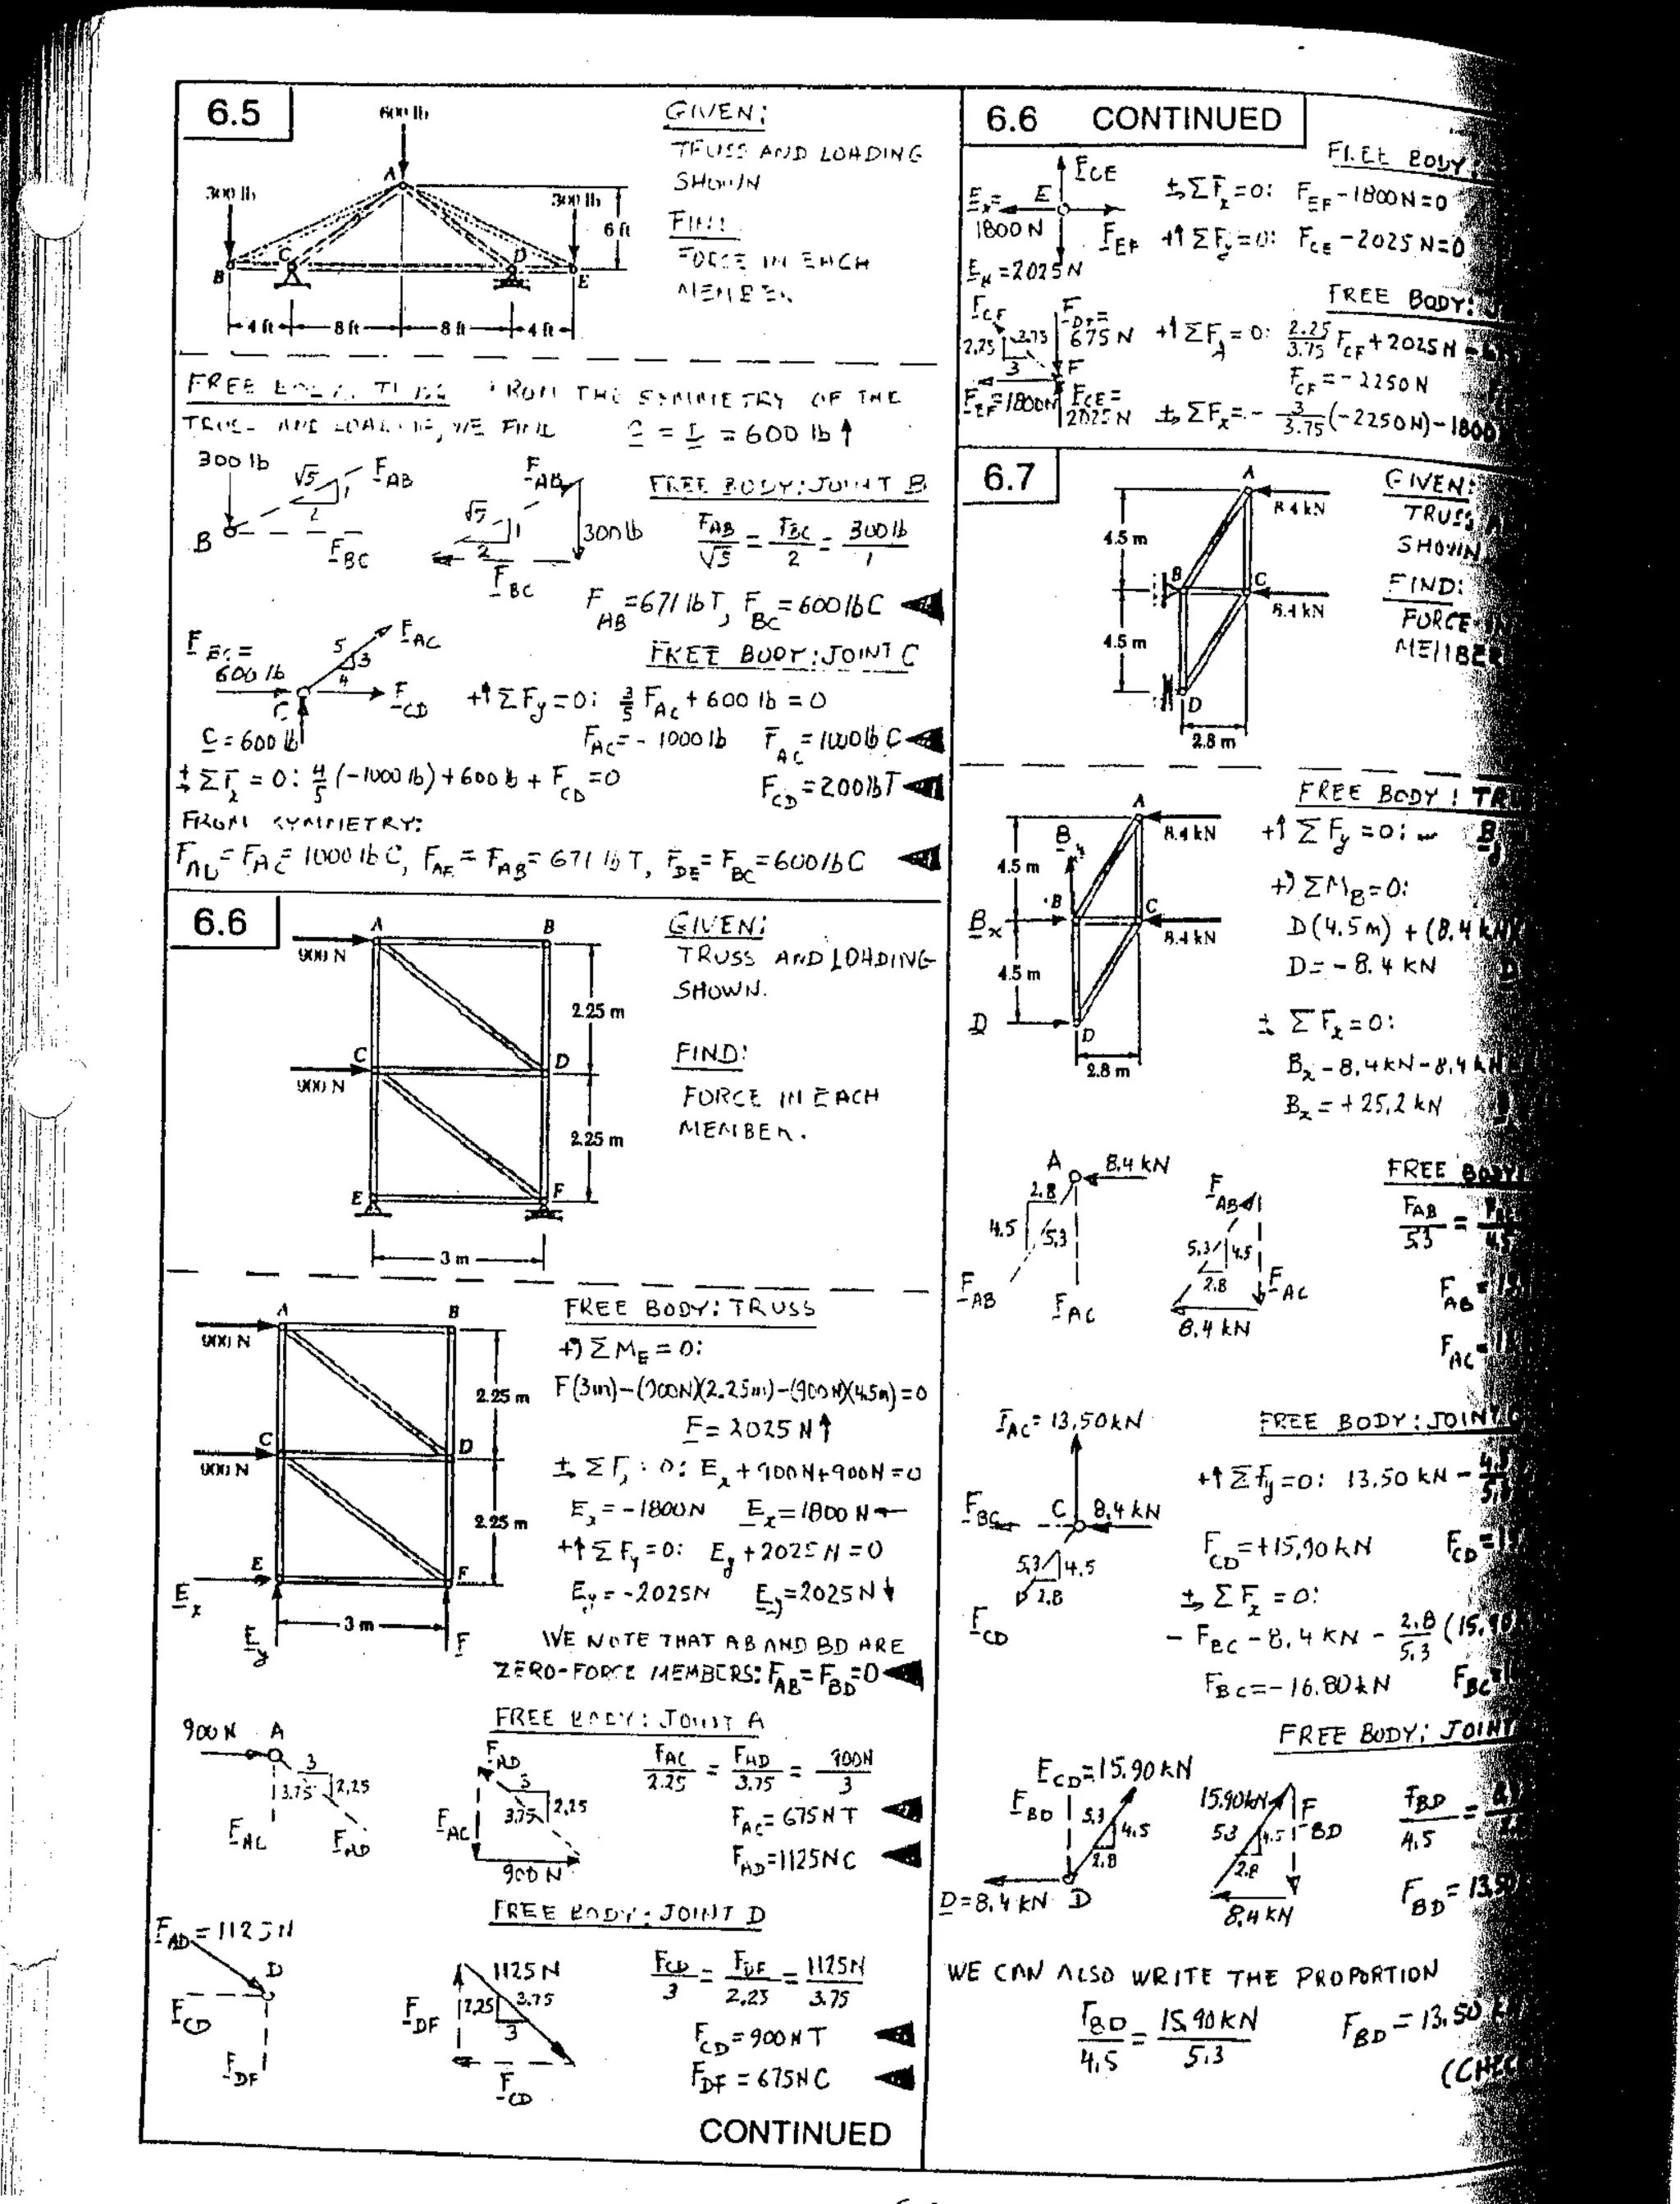 6.5
600 lb
GIVEN:
TRUSS AND LOADING
SHOWN
FIND:
FORCE IN EACH
MEMBER.
A
300 lb
300 lb
6 ft
B
C
D
E
4 ft
8 ft
8 ft
4 ft
FREE BODY: TRUSS FROM THE SYMMETRY OF THE
TRUSS AND LOADING, WE FIND C = E = 600 lb ↑
300 lb √5 F_AB
1
2
B F_BC
F_AB
√5 1 300 lb
2
F_BC
FREE BODY: JOINT B
F_AB/√5 = F_BC/2 = 300 lb/1
F_AB = 671 lb T, F_BC = 600 lb C
F_BC =
600 lb
5 3 4
F_AC
F_CD
C
C = 600 lb
FREE BODY: JOINT C
+↑ΣF_y = 0: 3/5 F_AC + 600 lb = 0
F_AC = - 1000 lb F_AC = 1000 lb C
+→ ΣF_x = 0: 4/5 (-1000 lb) + 600 lb + F_CD = 0 F_CD = 200 lb T
FROM SYMMETRY:
F_AD = F_AC = 1000 lb C, F_AE = F_AB = 671 lb T, F_DE = F_BC = 600 lb C
6.6
A B
900 N
2.25 m
C D
900 N
2.25 m
E F
3 m
GIVEN:
TRUSS AND LOADING
SHOWN.
FIND:
FORCE IN EACH
MEMBER.
A B
900 N
2.25 m
C D
900 N
2.25 m
E F
E_x
3 m
E_y F
FREE BODY: TRUSS
+↺ ΣM_E = 0:
F(3m) - (900N)(2.25m) - (900N)(4.5m) = 0
F = 2025 N ↑
+→ ΣF_x = 0: E_x + 900N + 900N = 0
E_x = -1800N E_x = 1800 N ←
+↑ΣF_y = 0: E_y + 2025 N = 0
E_y = -2025N E_y = 2025 N ↓
WE NOTE THAT AB AND BD ARE
ZERO-FORCE MEMBERS: F_AB = F_BD = 0
FREE BODY: JOINT A
900 N A
3
3.75 2.25
F_AC F_AD
F_AD
3
3.75 2.25
F_AC
900 N
F_AC/2.25 = F_AD/3.75 = 900N/3
F_AC = 675 N T
F_AD = 1125 N C
FREE BODY: JOINT D
F_AD = 1125 N
D
F_CD
F_DF
1125 N
2.25 3.75
3
F_DF
F_CD
F_CD/3 = F_DF/2.25 = 1125N/3.75
F_CD = 900 N T
F_DF = 675 N C
CONTINUED
6.6 CONTINUED
FREE BODY:
F_CE
E_x = E
1800 N F_EF
E_y = 2025 N
+→ΣF_x = 0: F_EF - 1800N = 0
+↑ΣF_y = 0: F_CE - 2025 N = 0
FREE BODY:
F_CF F_DF =
675 N
2.25 3.75
3 F
F_EF = 1800N F_CE =
2025 N
+↑ΣF_y = 0: 2.25/3.75 F_CF + 2025 N -
F_CF = - 2250 N
+→ ΣF_x = - 3/3.75 (-2250N) - 1800
6.7
A
8.4 kN
4.5 m
B C
8.4 kN
4.5 m
D
2.8 m
GIVEN:
TRUSS
SHOWN
FIND:
FORCE IN
MEMBER
A
8.4 kN
B_y
4.5 m
B C
B_x
8.4 kN
4.5 m
D
D
2.8 m
FREE BODY:
+↑ΣF_y = 0:
+↺ΣM_B = 0:
D(4.5 m) + (8.4
D = - 8.4 kN
+→ ΣF_x = 0:
B_x - 8.4 kN - 8.4
B_x = + 25.2 kN
A 8.4 kN
2.8
4.5 5.3
F_AB F_AC
F_AB
5.3 4.5
2.8 F_AC
8.4 kN
FREE BODY
F_AB/5.3 =
F_AB =
F_AC =
F_AC = 13.50 kN
FREE BODY: JOINT
F_BC C 8.4 kN
5.3 4.5
2.8
F_CD
+↑ΣF_y = 0: 13.50 kN -
F_CD = +15.90 kN F_CD =
+→ ΣF_x = 0:
- F_BC - 8.4 kN - 2.8/5.3 (15.90
F_BC = - 16.80 kN F_BC
FREE BODY: JOINT
F_CD = 15.90 kN
F_BD 5.3 4.5
2.8
D = 8.4 kN D
15.90 kN
5.3 4.5 F_BD
2.8
8.4 kN
F_BD/4.5 =
F_BD = 13.50
WE CAN ALSO WRITE THE PROPORTION
F_BD/4.5 = 15.90 kN/5.3 F_BD = 13.50